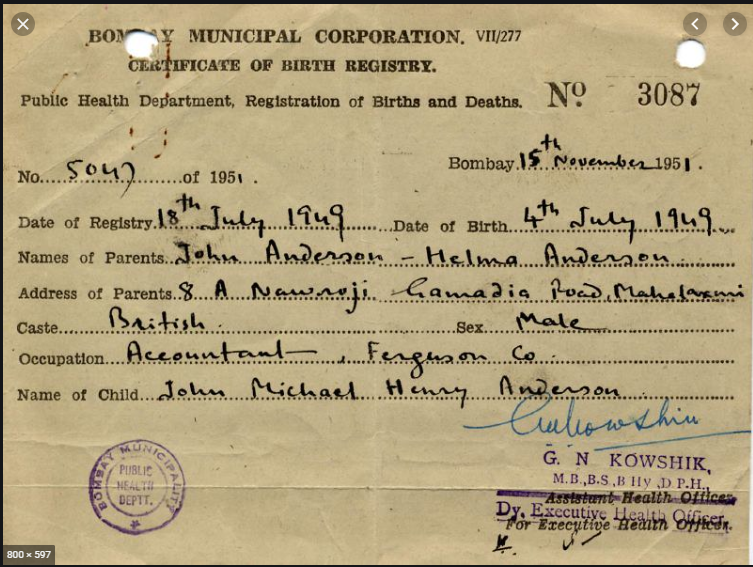 BOMBAY MUNICIPAL CORPORATION. VII/277
CERTIFICATE OF BIRTH REGISTRY.
Public Health Department, Registration of Births and Deaths. No 3087
Bombay 15th November 1951.
No. 5047 of 1951.
Date of Registry 18th July 1949 Date of Birth 4th July 1949
Names of Parents John Anderson - Helma Anderson
Address of Parents 8 A Nawroji Gamadia Road, Mahalaxmi
Caste British Sex Male
Occupation Accountant, Ferguson Co.
Name of Child John Michael Henry Anderson
G. N KOWSHIK,
M.B.,B.S,B Hy ,D P.H.,
Assistant Health Officer
Dy. Executive Health Officer,
For Executive Health Officer.
BOMBAY MUNICIPALITY
PUBLIC
HEALTH
DEPTT.
800 × 597